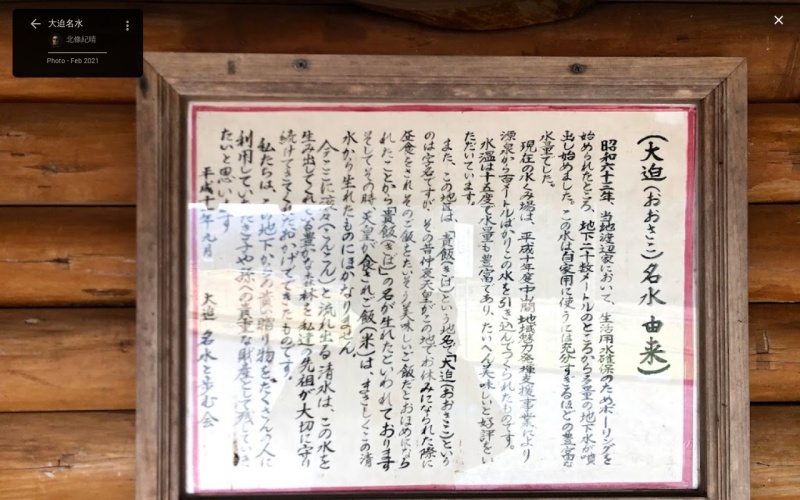 大迫名水
北條紀晴
Photo - Feb 2021
(大迫(おおさこ)名水 由来)
昭和六十三年、当地渡辺家において、生活用水確保のためボーリングを
始められたところ、地下二十数メートルのところから多量の地下水が噴
出し始めました。この水は自家用に使うには充分すぎるほどの豊富な
水量でした。
現在の水くみ場は、平成十年度中山間地域活力発揮支援事業により
源泉から百メートルばかりこの水を引き込んでつくられたものです。
水温は十五度で水量も豊富であり、たいへん美味しいと好評をい
ただいています。
また、この地区は、「貴飯(きば)」という地名で「大迫(おおさこ)」という
のは字名ですが、その昔仲哀天皇がこの地でお休みになられた際に
昼食をされそのご飯をたいそう美味しいご飯だとおほめになら
れたことから「貴飯(きば)」の名が生れたといわれております
そしてその時、天皇が食されご飯(米)は、まさしくこの清
水から生れたものにほかなりません
今ここに滾々(こんこん)と流れ出る清水は、この水を
生み出してくれている豊かな森林を私達の先祖が大切に守り
続けてきてくれたおかげでできたものです。
私たちは、この地下からの貴い贈り物をたくさんの人に
利用していただき子や孫への貴重な財産として残していき
たいと思います
平成十一年九月
大迫 名水と歩む会